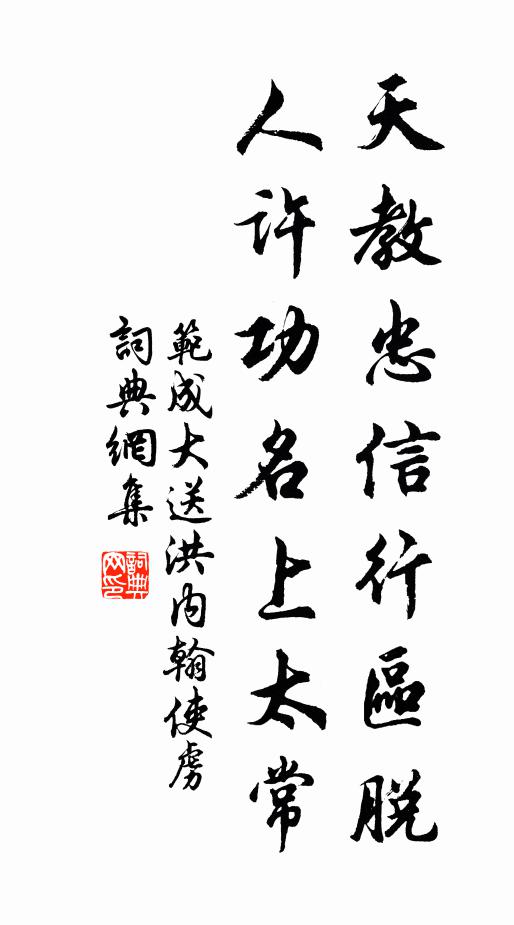 天教忠信行區脫
人許功名上太常
範成大送洪内翰使虜
詞典網集
詞典
网印